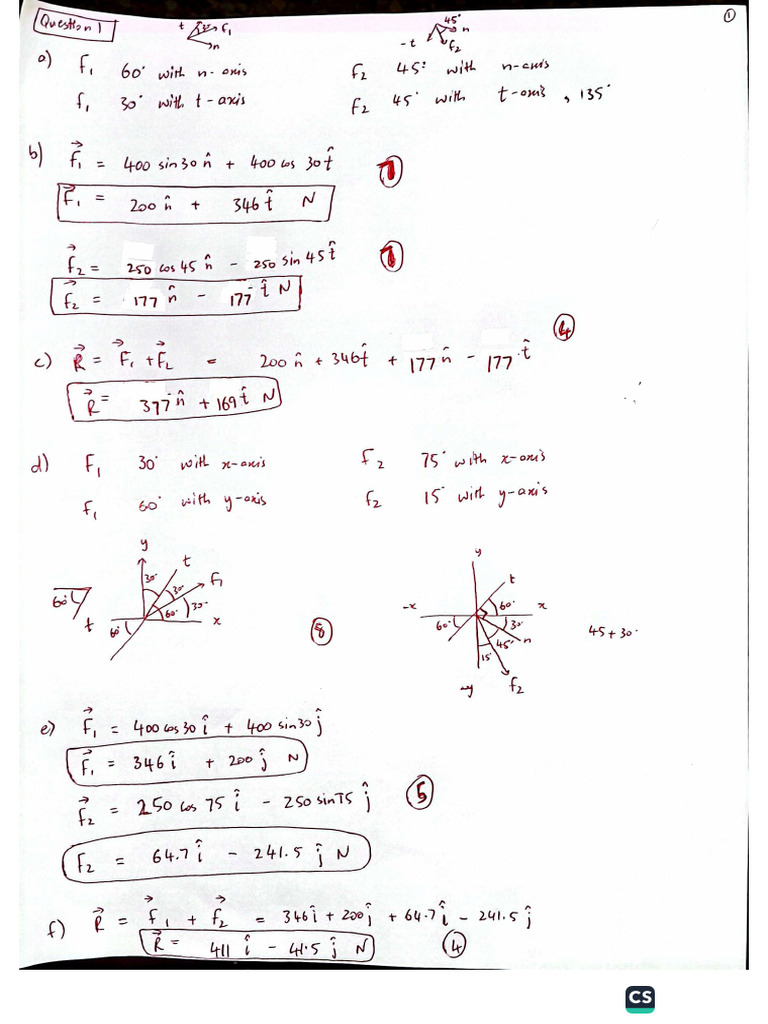 Question 1
①
t 30° F₁
n
45°
-t n
F₂
a) F₁ 60° with n-axis F₂ 45° with n-axis
F₁ 30° with t-axis F₂ 45° with t-axis, 135°
b) F⃗₁ = 400 sin30 n̂ + 400 cos 30 t̂
F⃗₁ = 200 n̂ + 346 t̂ N
F⃗₂ = 250 cos 45 n̂ - 250 sin 45 t̂
F⃗₂ = 177 n̂ - 177 t̂ N
④
c) R⃗ = F⃗₁ + F⃗₂ = 200 n̂ + 346 t̂ + 177 n̂ - 177 t̂
R⃗ = 377 n̂ + 169 t̂ N
d) F₁ 30° with x-axis F₂ 75° with x-axis
F₁ 60° with y-axis F₂ 15° with y-axis
y t F₁ x
30° 30° 60° 30° 60°
60° t
⑧
y t
-x 60° x
60° 30° n
45°
15°
-y F₂
45+30°
e) F⃗₁ = 400 cos 30 î + 400 sin30 ĵ
F⃗₁ = 346 î + 200 ĵ N
F⃗₂ = 250 cos 75 î - 250 sin75 ĵ ⑤
F₂ = 64.7 î - 241.5 ĵ N
f) R⃗ = F⃗₁ + F⃗₂ = 346 î + 200 ĵ + 64.7 î - 241.5 ĵ
R⃗ = 411 î - 41.5 ĵ N ④
CS